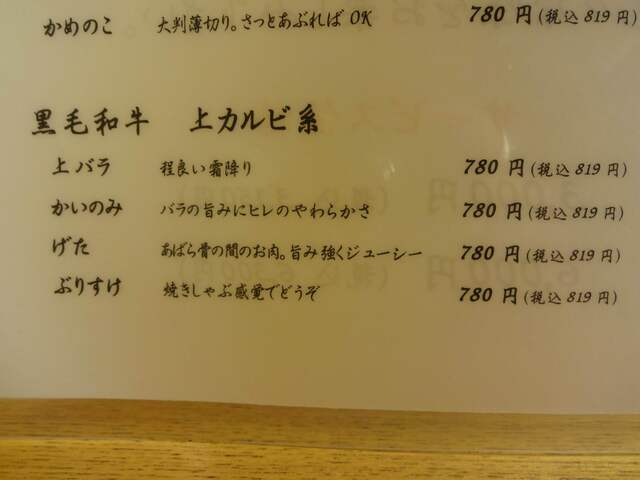 かめのこ 大判薄切り。さっとあぶれば OK 780 円(税込 819 円)
黒毛和牛 上カルビ系
上バラ 程良い霜降り 780 円(税込 819 円)
かいのみ バラの旨みにヒレのやわらかさ 780 円(税込 819 円)
げた あばら骨の間のお肉。旨み強くジューシー 780 円(税込 819 円)
ぶりすけ 焼きしゃぶ感覚でどうぞ 780 円(税込 819 円)